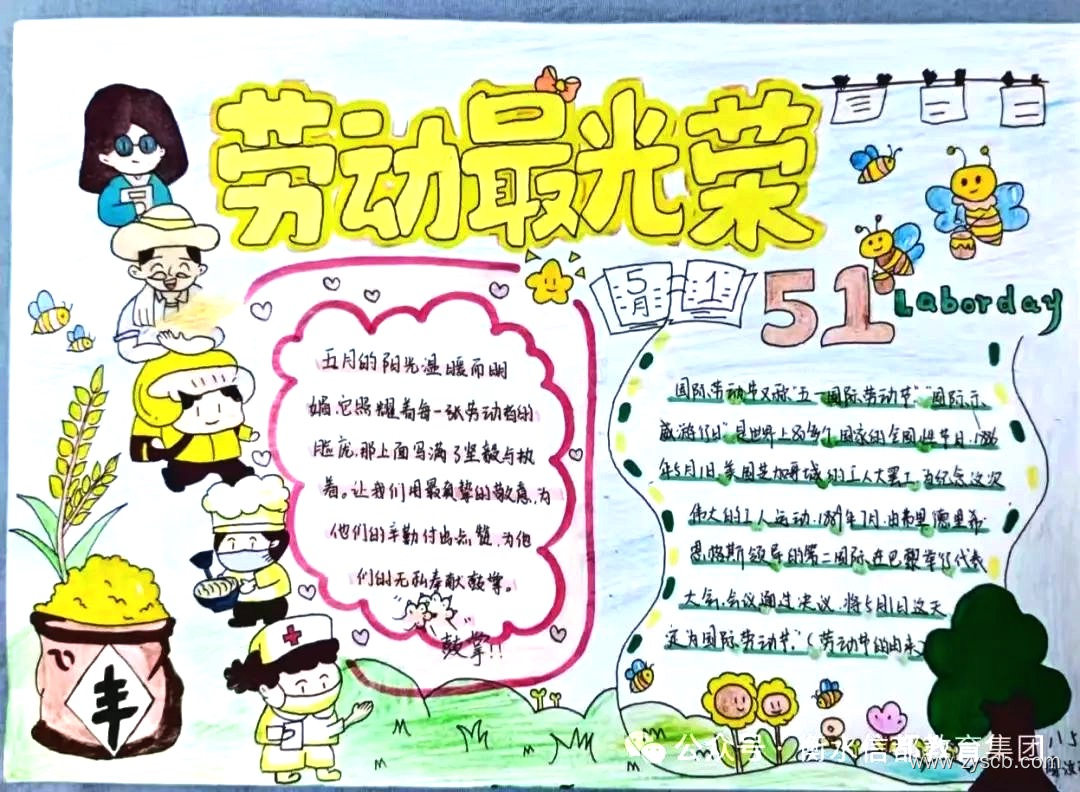 劳动最光荣
5月
1
51
Labor day
五月的阳光温暖而明
媚,它照耀着每一张劳动者的
脸庞,那上面写满了坚毅与执
着。让我们用最真挚的敬意,为
他们的辛勤付出点赞,为他
们的无私奉献鼓掌。
鼓掌!!
国际劳动节又称"五一国际劳动节""国际示
威游行日"是世界上80多个国家的全国性节日.1886
年5月1日,美国芝加哥城的工人大罢工,为纪念这次
伟大的工人运动,1889年7月,由弗里德里希
恩格斯领导的第二国际在巴黎举行代表
大会,会议通过决议,将5月1日这天
定为国际劳动节。(劳动节的由来
丰
公众号·衡水信都教育集团
www.zyscb.com